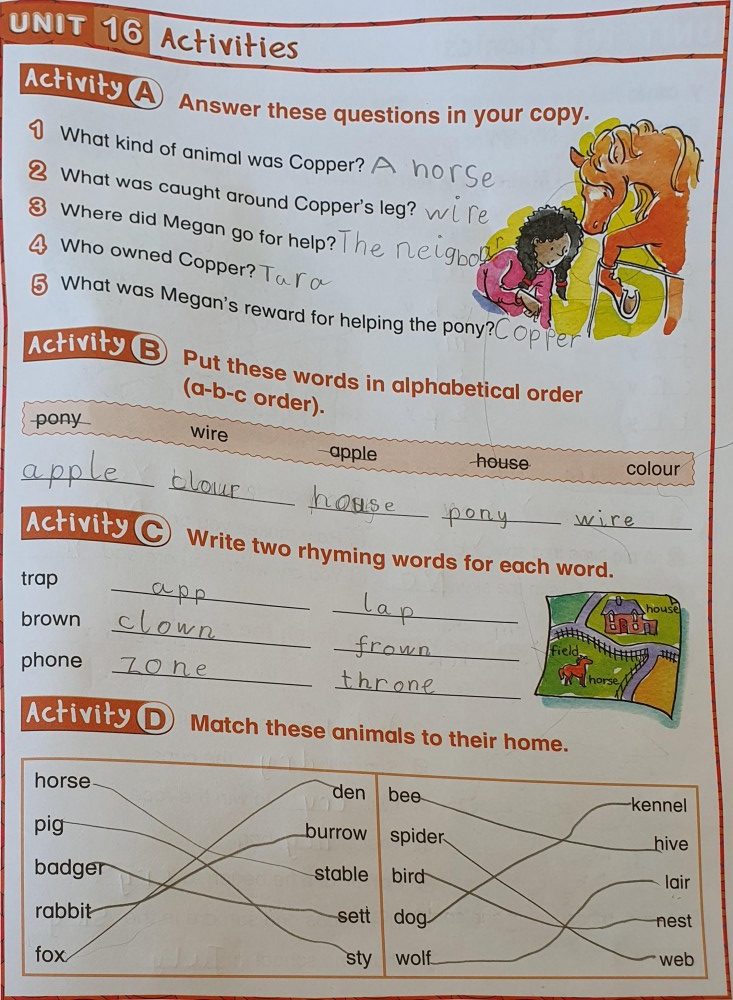 UNIT 16 Activities
Activity A Answer these questions in your copy.
1 What kind of animal was Copper? A horse
2 What was caught around Copper's leg? wire
3 Where did Megan go for help? The neigboor
4 Who owned Copper? Tara
5 What was Megan's reward for helping the pony? Copper
Activity B Put these words in alphabetical order
(a-b-c order).
pony wire apple house colour
apple clour house pony wire
Activity C Write two rhyming words for each word.
trap app lap
brown clown frown
phone zone throne
house
field
horse
Activity D Match these animals to their home.
horse den bee kennel
pig burrow spider hive
badger stable bird lair
rabbit sett dog nest
fox sty wolf web